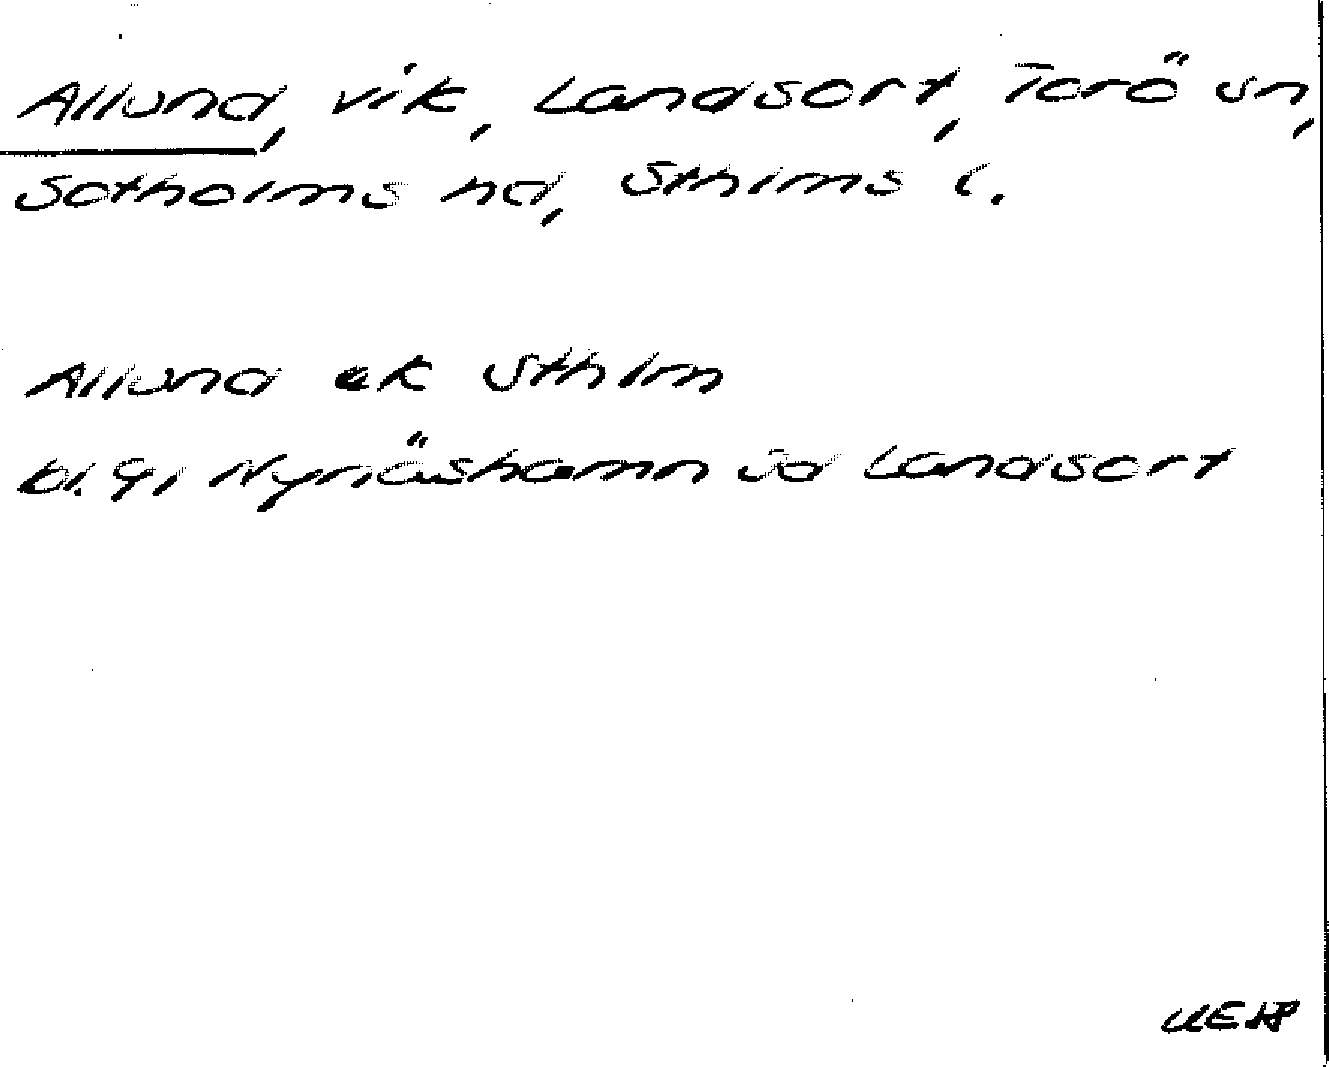 Allund, vik, Landsort, Torö sn,
Sotholms hd, Sthlms l.
Allund ek Sthlm
bl. 91 Nynäshamn Landsort